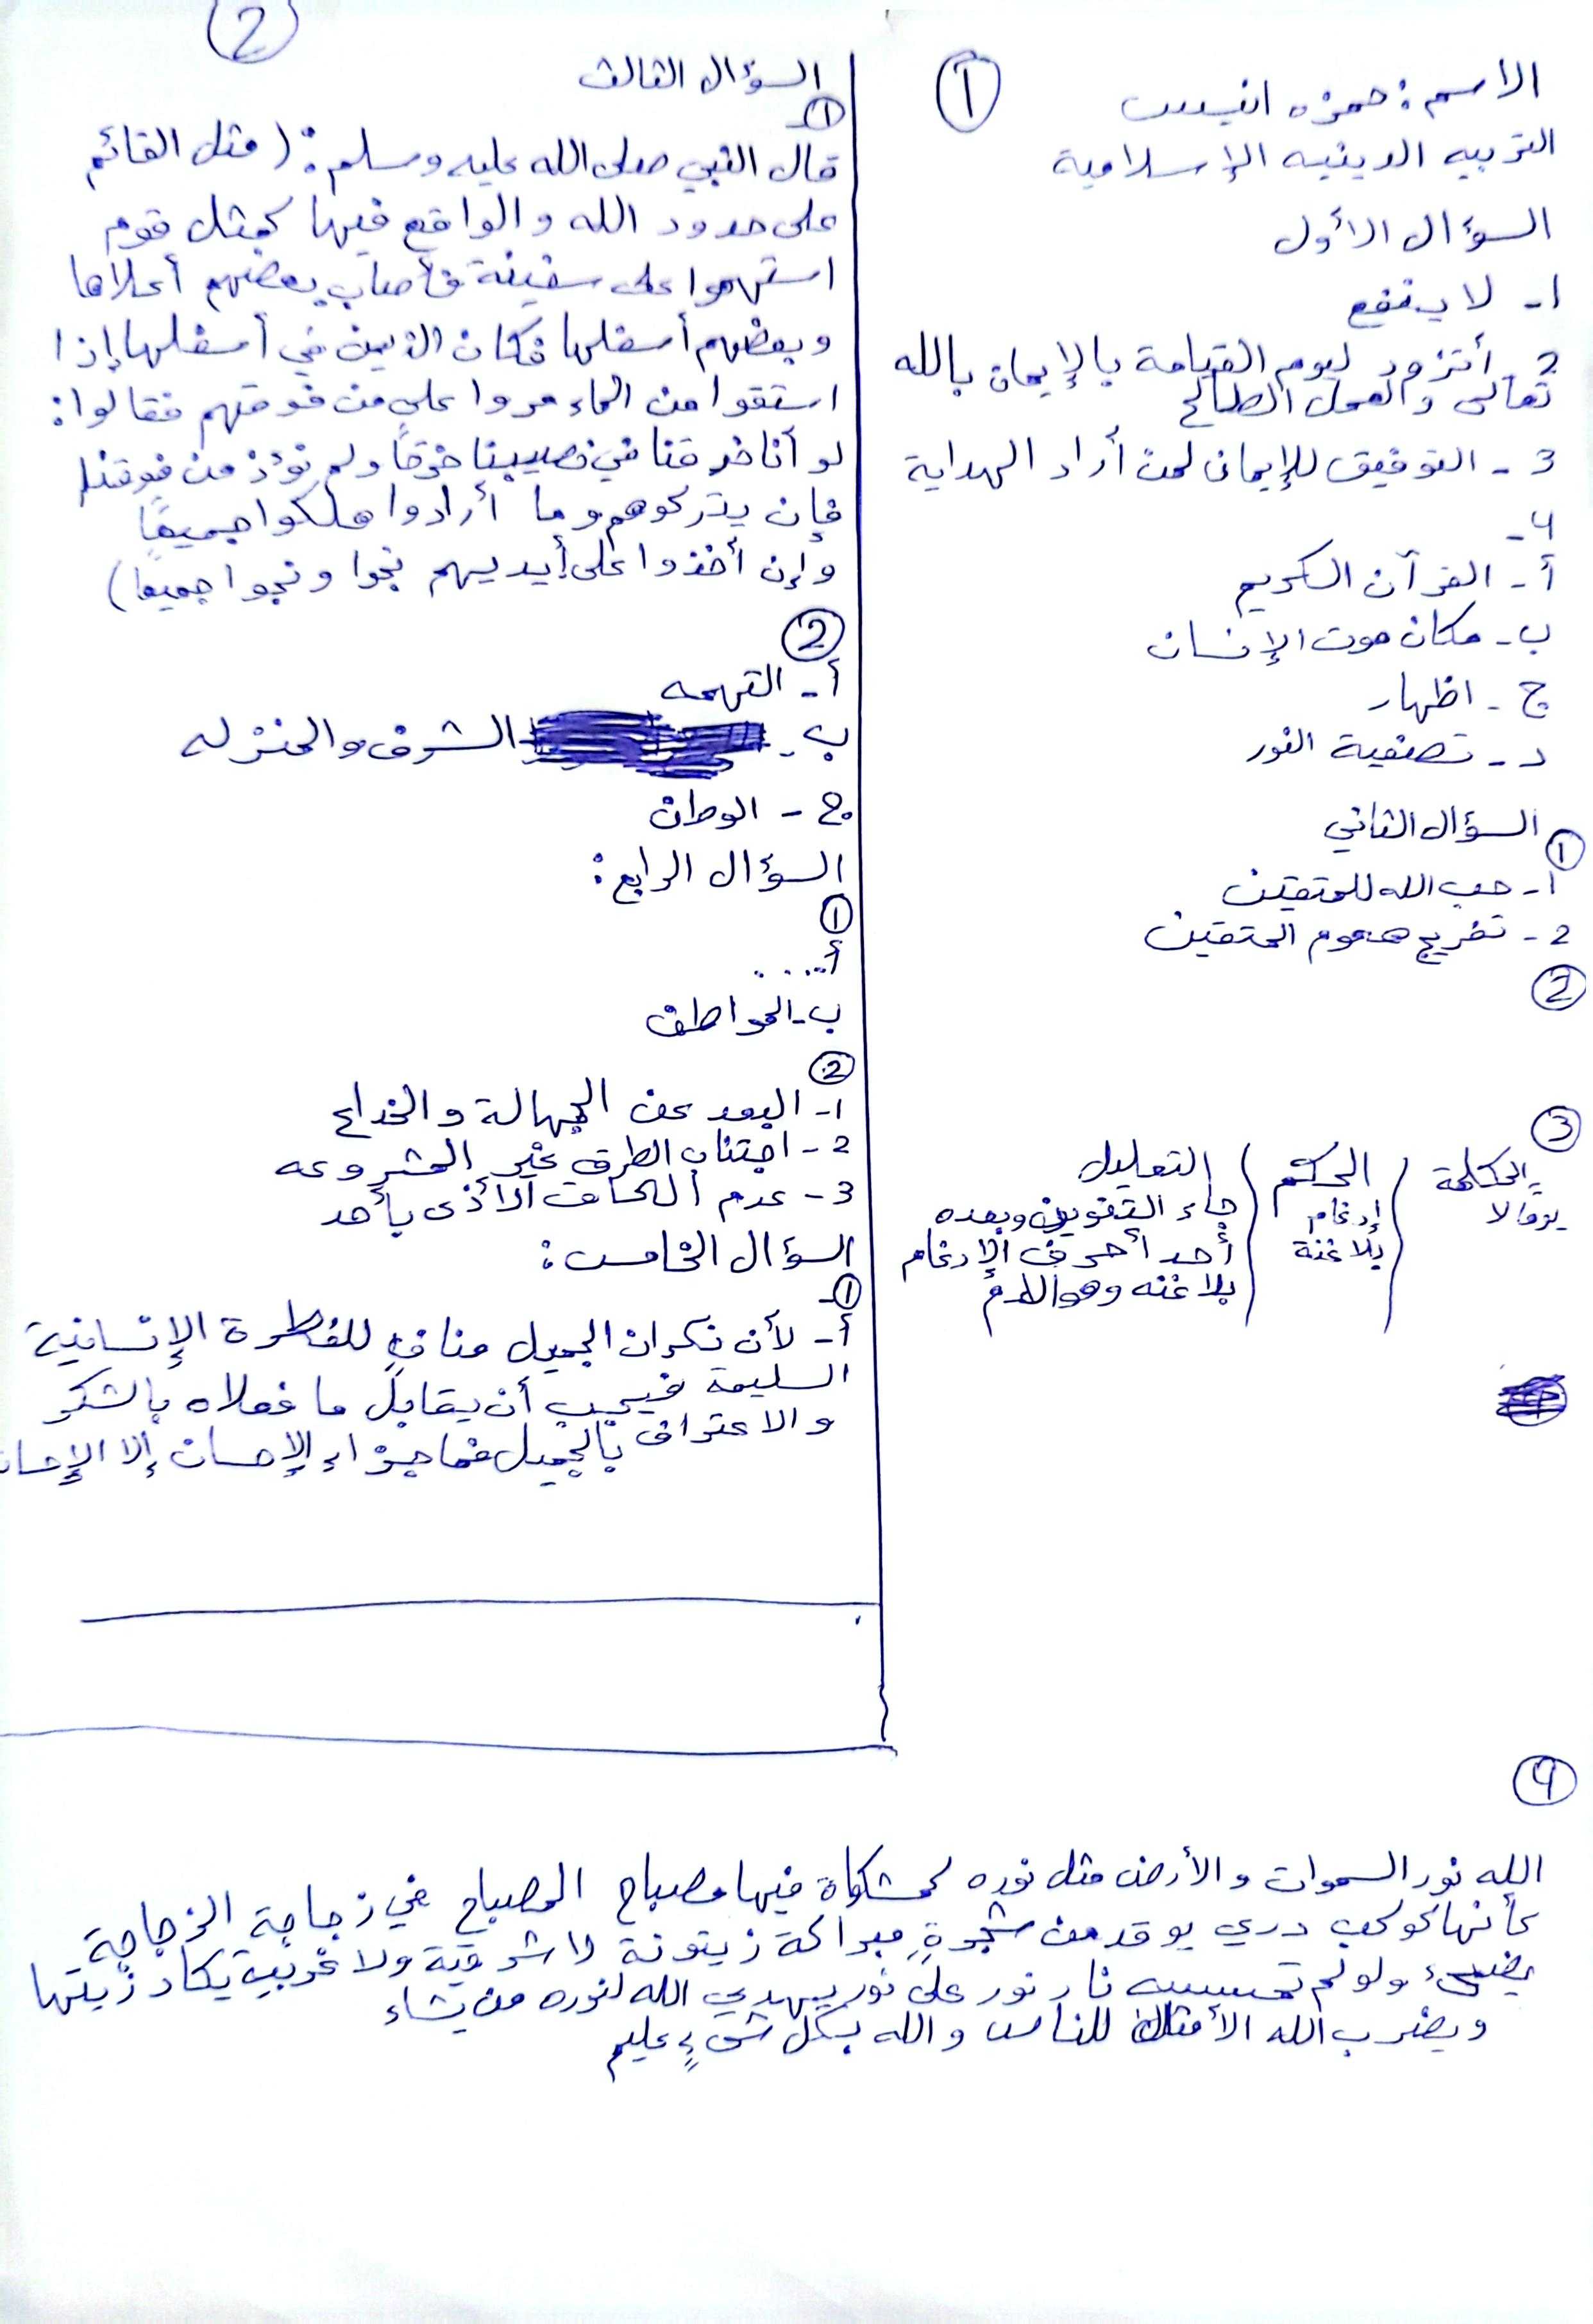 1
الاسم: حمزه انيس
التربيه الدينيه الإسلامية
السؤال الأول
1- لا ينفع
2- أتزود ليوم القيامة بالإيمان بالله
تعالى والعمل الصالح
3- التوفيق للإيمان لمن أراد الهداية
4-
أ- القرآن الكريم
ب- مكان موت الإنسان
ج- اظهار
د- تصفية النور
السؤال الثاني
1
1- حب الله للمتقين
2- تفريج هموم المتقين
2
3
الكلمة / الحكم / التعليل
إدغام بلا غنة / جاء التنوين وبعده
أحد أحرف الإدغام
بلا غنه وهو اللام
4
الله نور السموات والأرض مثل نوره كمشكاة فيها مصباح المصباح في زجاجة الزجاجة
كأنها كوكب دري يوقد من شجرةٍ مباركة زيتونة لا شرقية ولا غربية يكاد زيتها
يضيء ولو لم تمسسه نار نور على نور يهدي الله لنوره من يشاء
ويضرب الله الأمثال للناس والله بكل شيءٍ عليم
2
السؤال الثالث
1
قال النبي صلى الله عليه وسلم: (مثل القائم
على حدود الله والواقع فيها كمثل قوم
استهموا على سفينة فأصاب بعضهم أعلاها
وبعضهم أسفلها فكان الذين في أسفلها إذا
استقوا من الماء مروا على من فوقهم فقالوا:
لو أنا خرقنا في نصيبنا خرقاً ولم نؤذ من فوقنا
فإن يتركوهم وما أرادوا هلكوا جميعًا
وإن أخذوا على أيديهم نجوا ونجوا جميعا)
2
أ- التهمه
ب- الشرف والمنزله
ج- الوطن
السؤال الرابع:
1
أ....
ب- المواطن
2
1- البعد عن الجهالة والخداع
2- اجتناب الطرق غير المشروعه
3- عدم إلحاق الأذى بأحد
السؤال الخامس:
1
أ- لأن نكران الجميل منافٍ للفطرة الإنسانية
السليمة فيجب أن يقابل ما فعلاه بالشكر
والاعتراف بالجميل فما جزاء الإحسان إلا الإحسان